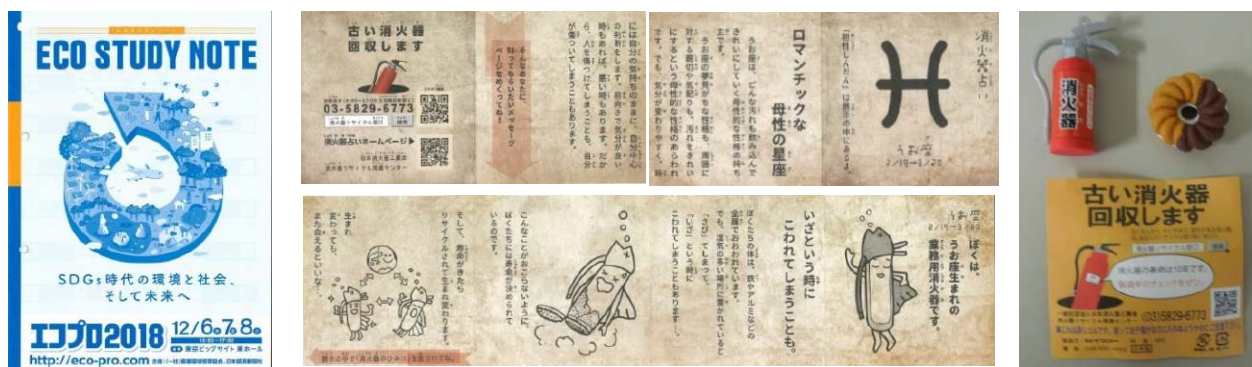 ECO STUDY NOTE
SDGs時代の環境と社会、
そして未来へ
エコプロ2018 12/6.7.8
東京ビッグサイト 東ホール
http://eco-pro.com
古い消火器
回収します
03-5829-6773
消火器占いホームページ▶
そんなあなたに、
知ってもらいたいメッセージ
ページをめくってね!
には自分の気持ちのままに、自分中心
の判断をします。前向きで気分が良い
時もあれば、悪い時もあります。だか
ら、人を傷つけてしまうことも、自分
が傷ついてしまうこともあります。
消火器占い
うお座
2/19→3/20
「相性しんだん」は展示の中にあるよ。
ロマンチックな
母性の星座
うお座は、どんな汚れも飲み込んで
きれいにしていく母性的な性格の持ち
主です。
うお座の夢見がちな性格も、周囲に
対する親切や気配りも、汚れをきれい
にするという母性的な性格のあらわれ
です。でも、気分が変わりやすく、時
うお座
2/19→3/20
ぼくは、
うお座生まれの
業務用消火器です。
いざという時に
こわれてしまうことも。
ぼくたちの体は、鉄やアルミなどの
金属でおおわれています。
でも、湿気の多い場所に置かれていると
「さび」てしまって、
「いざ」という時に
こわれてしまうこともあります…。
こんなことがおこらないように、
ぼくたちには寿命が決められて
いるのです。
そして、寿命がきたら
リサイクルされて生まれ変わります。
生まれ
変わっても、
また会えるといいな。
消火器
古い消火器
回収します
消火器の寿命は10年です。
(03)5829-6773